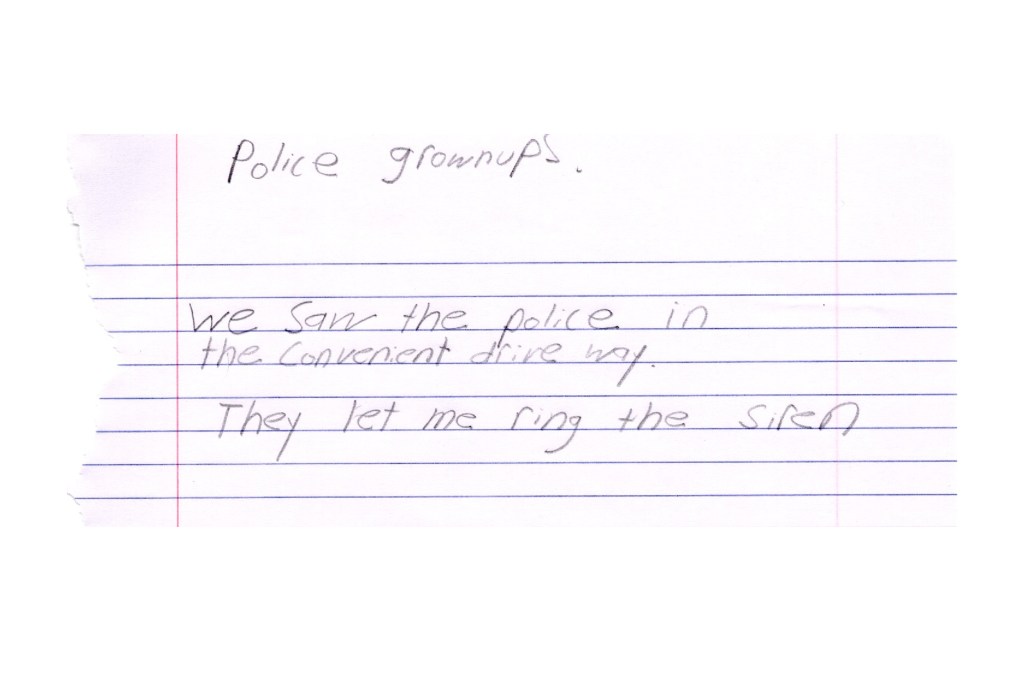 Police grownups.
We saw the police in
the convenient drive way.
They let me ring the siren